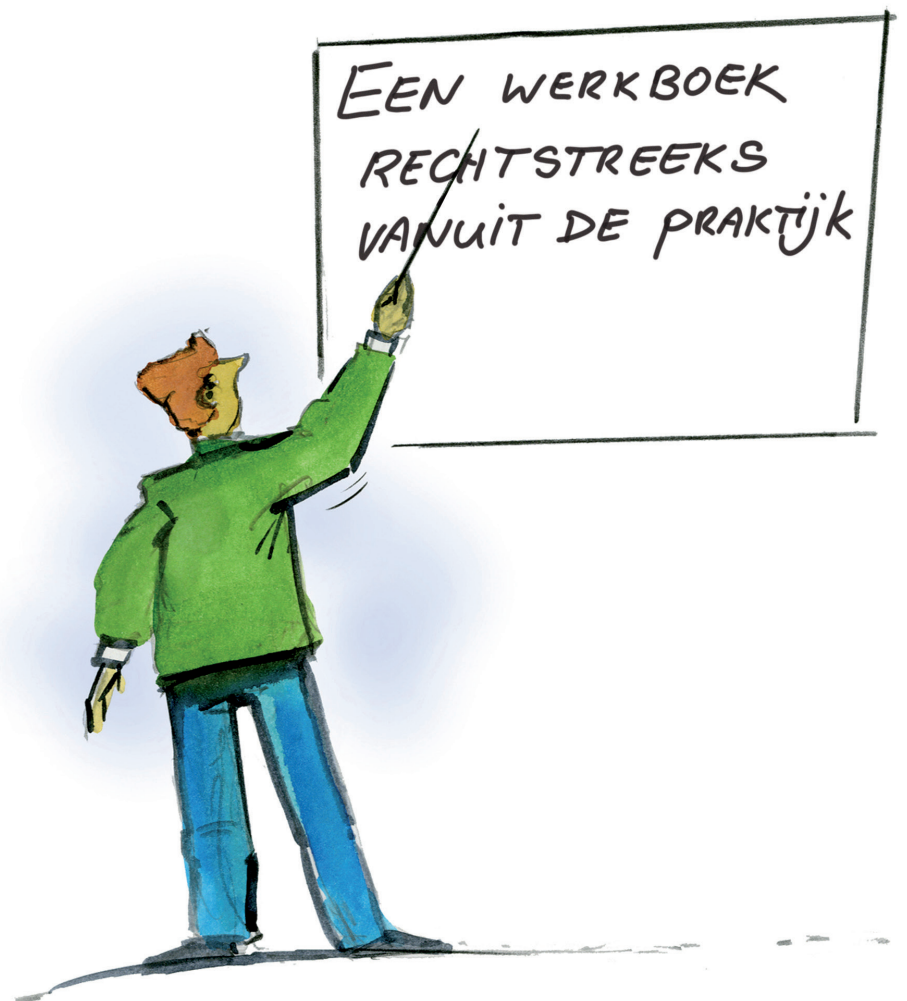 EEN WERKBOEK
RECHTSTREEKS
VANUIT DE PRAKTIJK